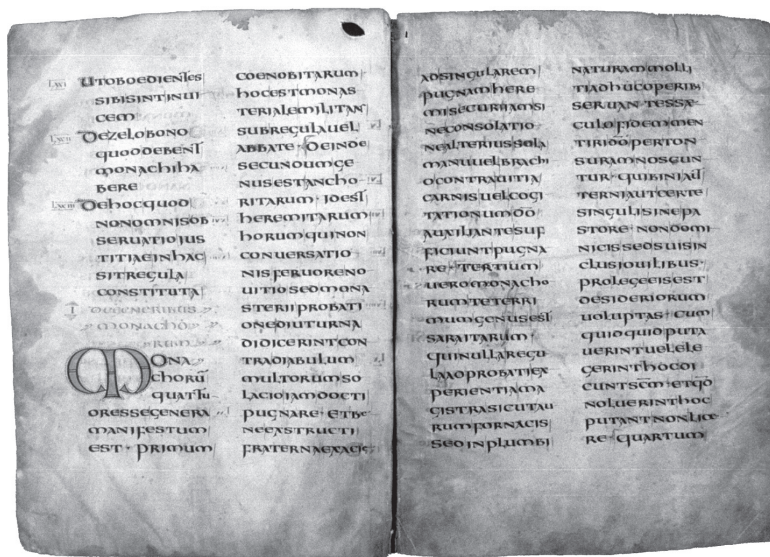 LXXI UTOBOEDIENTES
SIBISINTINUI
CEM
LXXII DEZELOBONO
QUODDEBENT
MONACHIHA
BERE
LXXIII DEHOCQUOD
NONOMNISOB
SERUATIOIUS
TITIAEINHAC
SITREGULA
CONSTITUTA
I DEGENERIBUS
MONACHO
RUM
MONA
CHORŪ
QUATTU
ORESSEGENERA
MANIFESTUM
EST · PRIMUM
COENOBITARUM
HOCESTMONAS
TERIALEMILITAN
SUBREGULAUEL
ABBATE · DEINDE
SECUNDUMGE
NUSESTANCHO
RITARUM · IDEST
HEREMITARUM
HORUMQUINON
CONUERSATIO
NISFERUORENO
UITIOSEDMONA
STERIIPROBATI
ONEDIUTURNA
DIDICERINTCON
TRADIABULUM
MULTORUMSO
LACIOIAMDOCTI
PUGNARE · ETBE
NEEXSTRUCTI
FRATERNAEXACIE
ADSINGULAREM
PUGNAMHERE
MISECURIIAMSI
NECONSOLATIO
NEALTERIUSSOLA
MANUUELBRACHI
OCONTRAUITIA
CARNISUELCOGI
TATIONUMDŌ
AUXILIANTESUF
FICIUNTPUGNA
RE · TERTIUM
UEROMONACHO
RUMTETERRI
MUMGENUSEST
SARAITARUM ·
QUINULLAREGU
LAADPROBATIEX
PERIENTIAMA
GISTRASICUTAU
RUMFORNACIS
SEDINPLUMBI
NATURAMMOLLI
TIADHUCOPERIB;
SERUANTESSAE
CULOFIDEMMEN
TIRIDŌPERTON
SURAMNOSCUN
TUR · QUIBINIAUT
TERNIAUTCERTE
SINGULISINEPA
STORE · NONDOMI
NICISSEDSUISIN
CLUSIOUILIBUS ·
PROLEGEEISEST
DESIDERIORUM
UOLUPTAS · CUM
QUIDQUIDPUTA
UERINTUELELE
GERINTHOCDI
CUNTSC̄M · ETQD̄
NOLUERINTHOC
PUTANTNONLICE
RE · QUARTUM